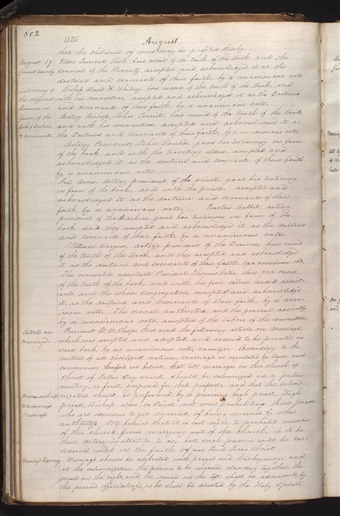 502
1835 August
August 17
Elder Samuel
record of the truth of the book, and the
council of the Seventy accepted and acknowledged it as the
doctrine and covenants of their faith, by a unanimous vote.
Bishop Newel K. Whitney, bore record of the truth of the book, and
with his counsellors, accepted and acknowledged it as the doctrine
and covenants of their faith, by a unanimous vote.
Acting Bishop, John Corrill, bore record of the truth of the book
and with his counsellors, accepted and acknowledged it as
the doctrine and covenants of their faith, by a unanimous vote.
Acting President, John Gould, gave his testimony in favor
of the book, and with the travelling elders, accepted and
acknowledged it as the doctrine and covenants of their faith
by a unanimous vote.
Ira Ames, acting President of the priests, gave his testimony
in favor of the book, and with the priests, accepted and
acknowledged it as the doctrine and covenants of their
faith, by a unanimous vote. Erastus Babbit, acting
president of the teachers, gave his testimony in favor of the
book, and they accepted and acknowledged it, as the doctrine
and covenants of their faith, by a unanimous vote.
William Burgess, acting president of the Deacons, bore record
of the truth of the book, and they accepted and acknowledged
it as the doctrine and covenants of their faith, by a unanimous vote.
The venerable assistant President, Thomas Gates, then bore record
of the truth of the book, and with his five silver headed assist-
ants, and the whole congregation, accepted and acknowledged
it, as the doctrine and covenants of their faith, by a unan-
imous vote. The several authorities, and the general assembly
by a unanimous vote, accepted of the labors of the committee.
Article on
Marriage
President W. W. Phelps then read the following article on Marriage
which was accepted and adopted, and ordered to be printed in
said book, by a unanimous vote, namely: According to the
custom of all civilized nations, marriage is regulated by laws and
ceremonies: therefore we believe, that all marriages in this church of
Christ of Latter Day Saints, should be solemnized in a public
meeting, or feast, prepared for that purpose: and that the solem-
nization should be performed by a presiding high priest, high
priest, bishop, elder, or priest, not even prohibiting those persons
who are desirous to get married, of being married by other
authority. We believe that it is not right to prohibit members
of this church from marrying out of the church, if it be
their determination so to do, but such persons will be con-
sidered weak in the faith of our Lord Jesus Christ.
Marriage should be celebrated with prayer and thanksgiving; and
at the solemnization, the persons to be married, standing together, the
man on the right, and the woman on the left, shall be addressed, by
the person officiating, as he shall be directed by the Holy Spirit;